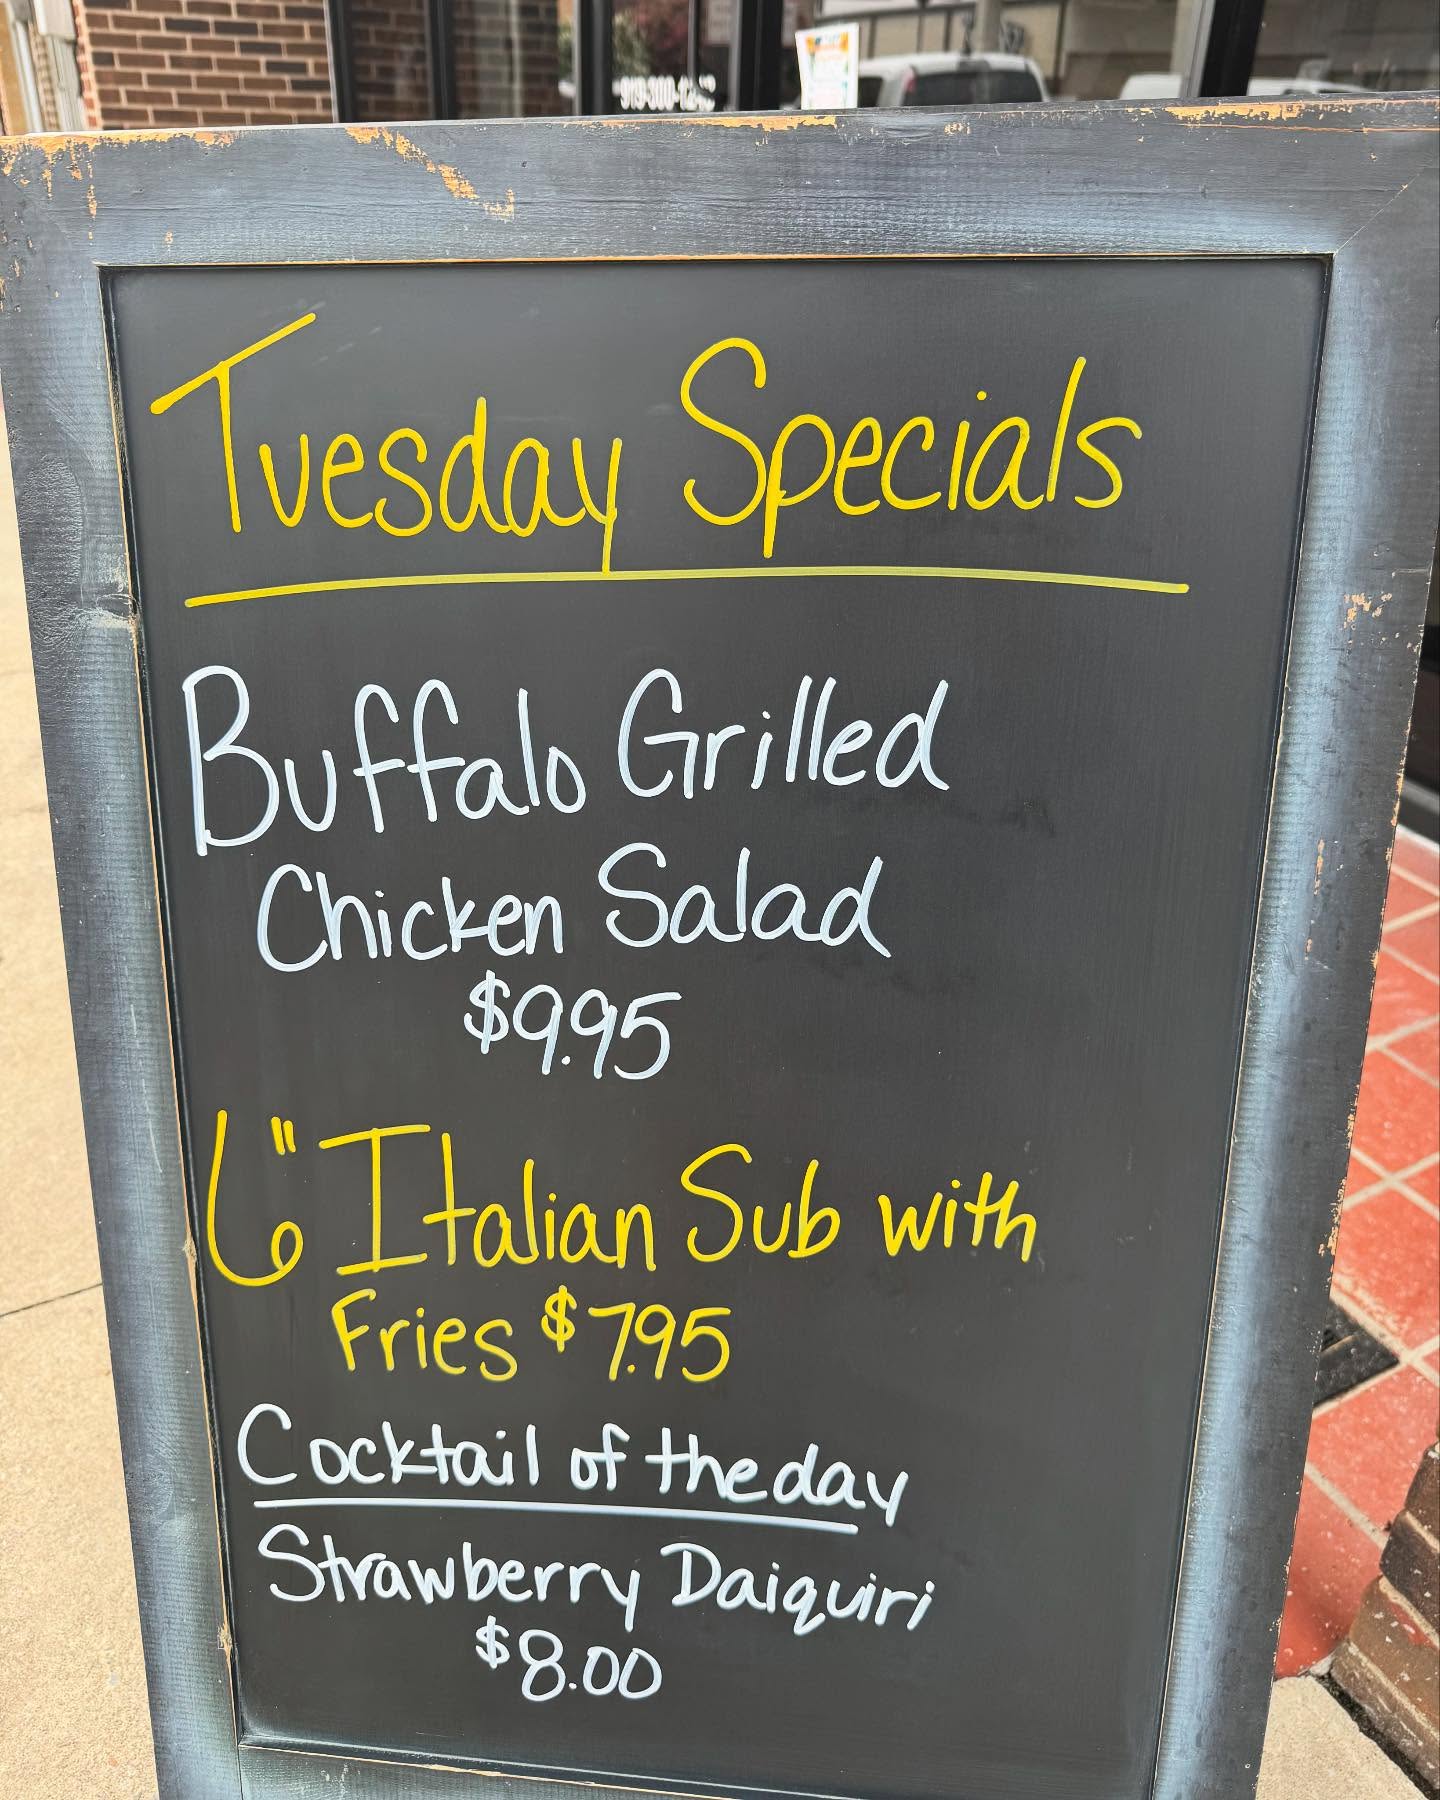 Tuesday Specials
Buffalo Grilled
Chicken Salad
$9.95
6" Italian Sub with
Fries $7.95
Cocktail of the day
Strawberry Daiquiri
$8.00